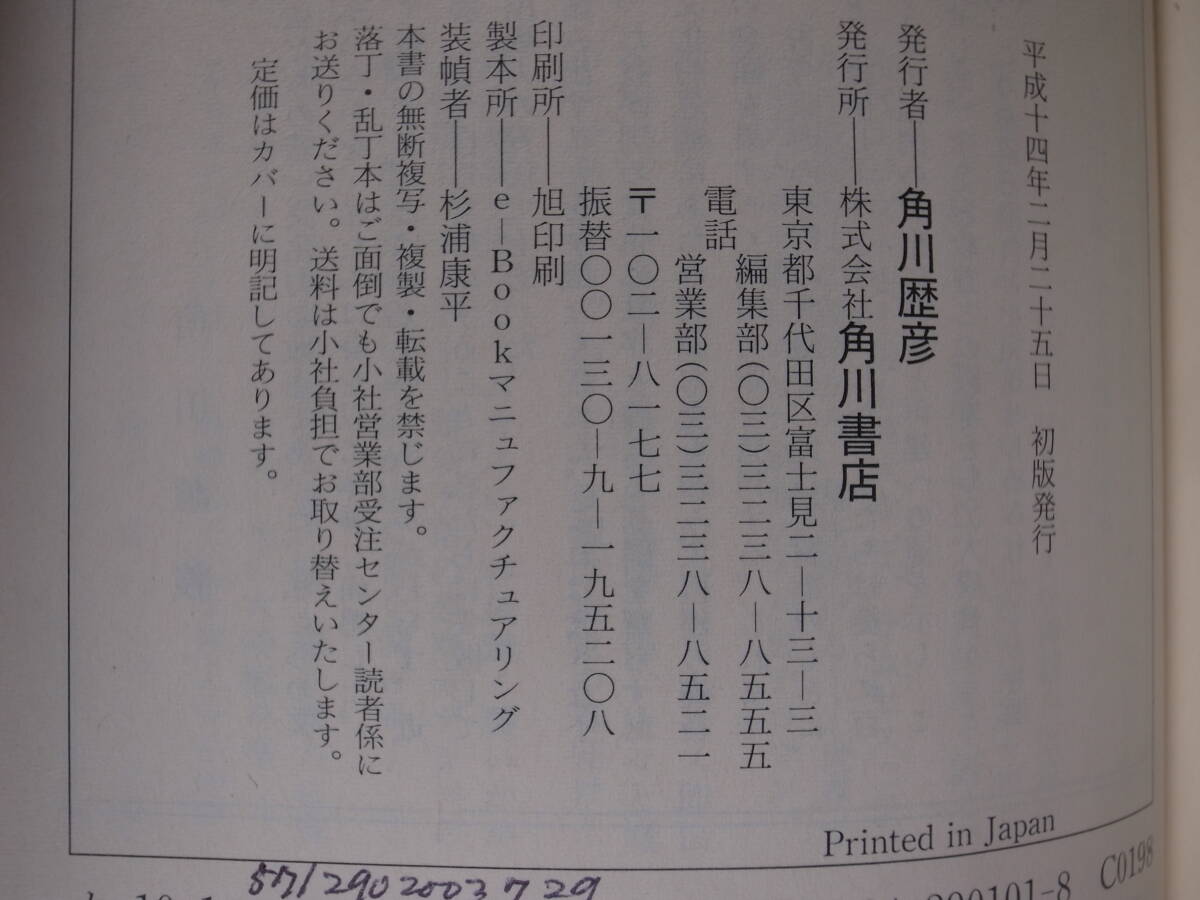 平成十四年二月二十五日　初版発行
発行者――角川歴彦
発行所――株式会社角川書店
東京都千代田区富士見二―十三―三
電話
編集部(〇三)三二三八―八五五五
営業部(〇三)三二三八―八五二一
〒一〇二―八一七七
振替〇〇一三〇―九―一九五二〇八
印刷所――旭印刷
製本所――e―Bookマニュファクチュアリング
装幀者――杉浦康平
本書の無断複写・複製・転載を禁じます。
落丁・乱丁本はご面倒でも小社営業部受注センター読者係に
お送りください。送料は小社負担でお取り替えいたします。
定価はカバーに明記してあります。
Printed in Japan
200101-8 C0198
5712902003729